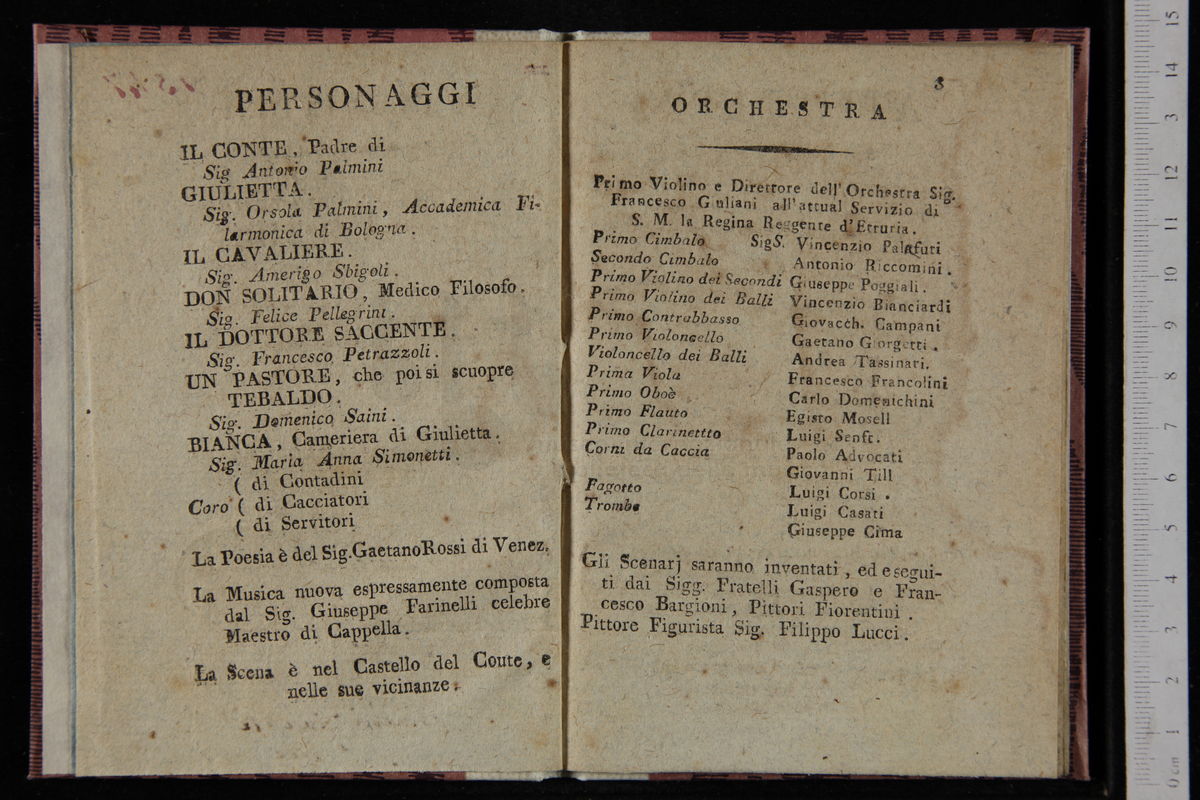 PERSONAGGI
IL CONTE, Padre di
Sig Antonio Palmini
GIULIETTA.
Sig. Orsola Palmini, Accademica Fi-
larmonica di Bologna.
IL CAVALIERE.
Sig. Amerigo Sbigoli.
DON SOLITARIO, Medico Filosofo.
Sig. Felice Pellegrini.
IL DOTTORE SACCENTE.
Sig. Francesco Petrazzoli.
UN PASTORE, che poi si scuopre
TEBALDO.
Sig. Domenico Saini.
BIANCA, Cameriera di Giulietta.
Sig. Maria Anna Simonetti.
( di Contadini
Coro ( di Cacciatori
( di Servitori
La Poesia è del Sig. Gaetano Rossi di Venez.
La Musica nuova espressamente composta
dal Sig. Giuseppe Farinelli celebre
Maestro di Cappella.
La Scena è nel Castello del Coute, e
nelle sue vicinanze.
3
ORCHESTRA
Primo Violino e Direttore dell'Orchestra Sig.
Francesco Giuliani all'attual Servizio di
S. M. la Regina Reggente d'Etruria.
Primo Cimbalo SigS. Vincenzio Palafuti
Secondo Cimbalo Antonio Riccomini.
Primo Violino dei Secondi Giuseppe Poggiali.
Primo Violino dei Balli Vincenzio Bianciardi
Primo Contrabbasso Giovacch. Campani
Primo Violoncello Gaetano Giorgetti.
Violoncello dei Balli Andrea Tassinari.
Prima Viola Francesco Francolini
Primo Oboè Carlo Domenichini
Primo Flauto Egisto Mosell
Primo Clarinettto Luigi Senft.
Corni da Caccia Paolo Advocati
Giovanni Till
Fagotto Luigi Corsi.
Trombe Luigi Casati
Giuseppe Cima
Gli Scenarj saranno inventati, ed esegui-
ti dai Sigg. Fratelli Gaspero e Fran-
cesco Bargioni, Pittori Fiorentini.
Pittore Figurista Sig. Filippo Lucci.
15
14
3
12
11
10
9
8
7
6
5
4
3
2
1
0 cm